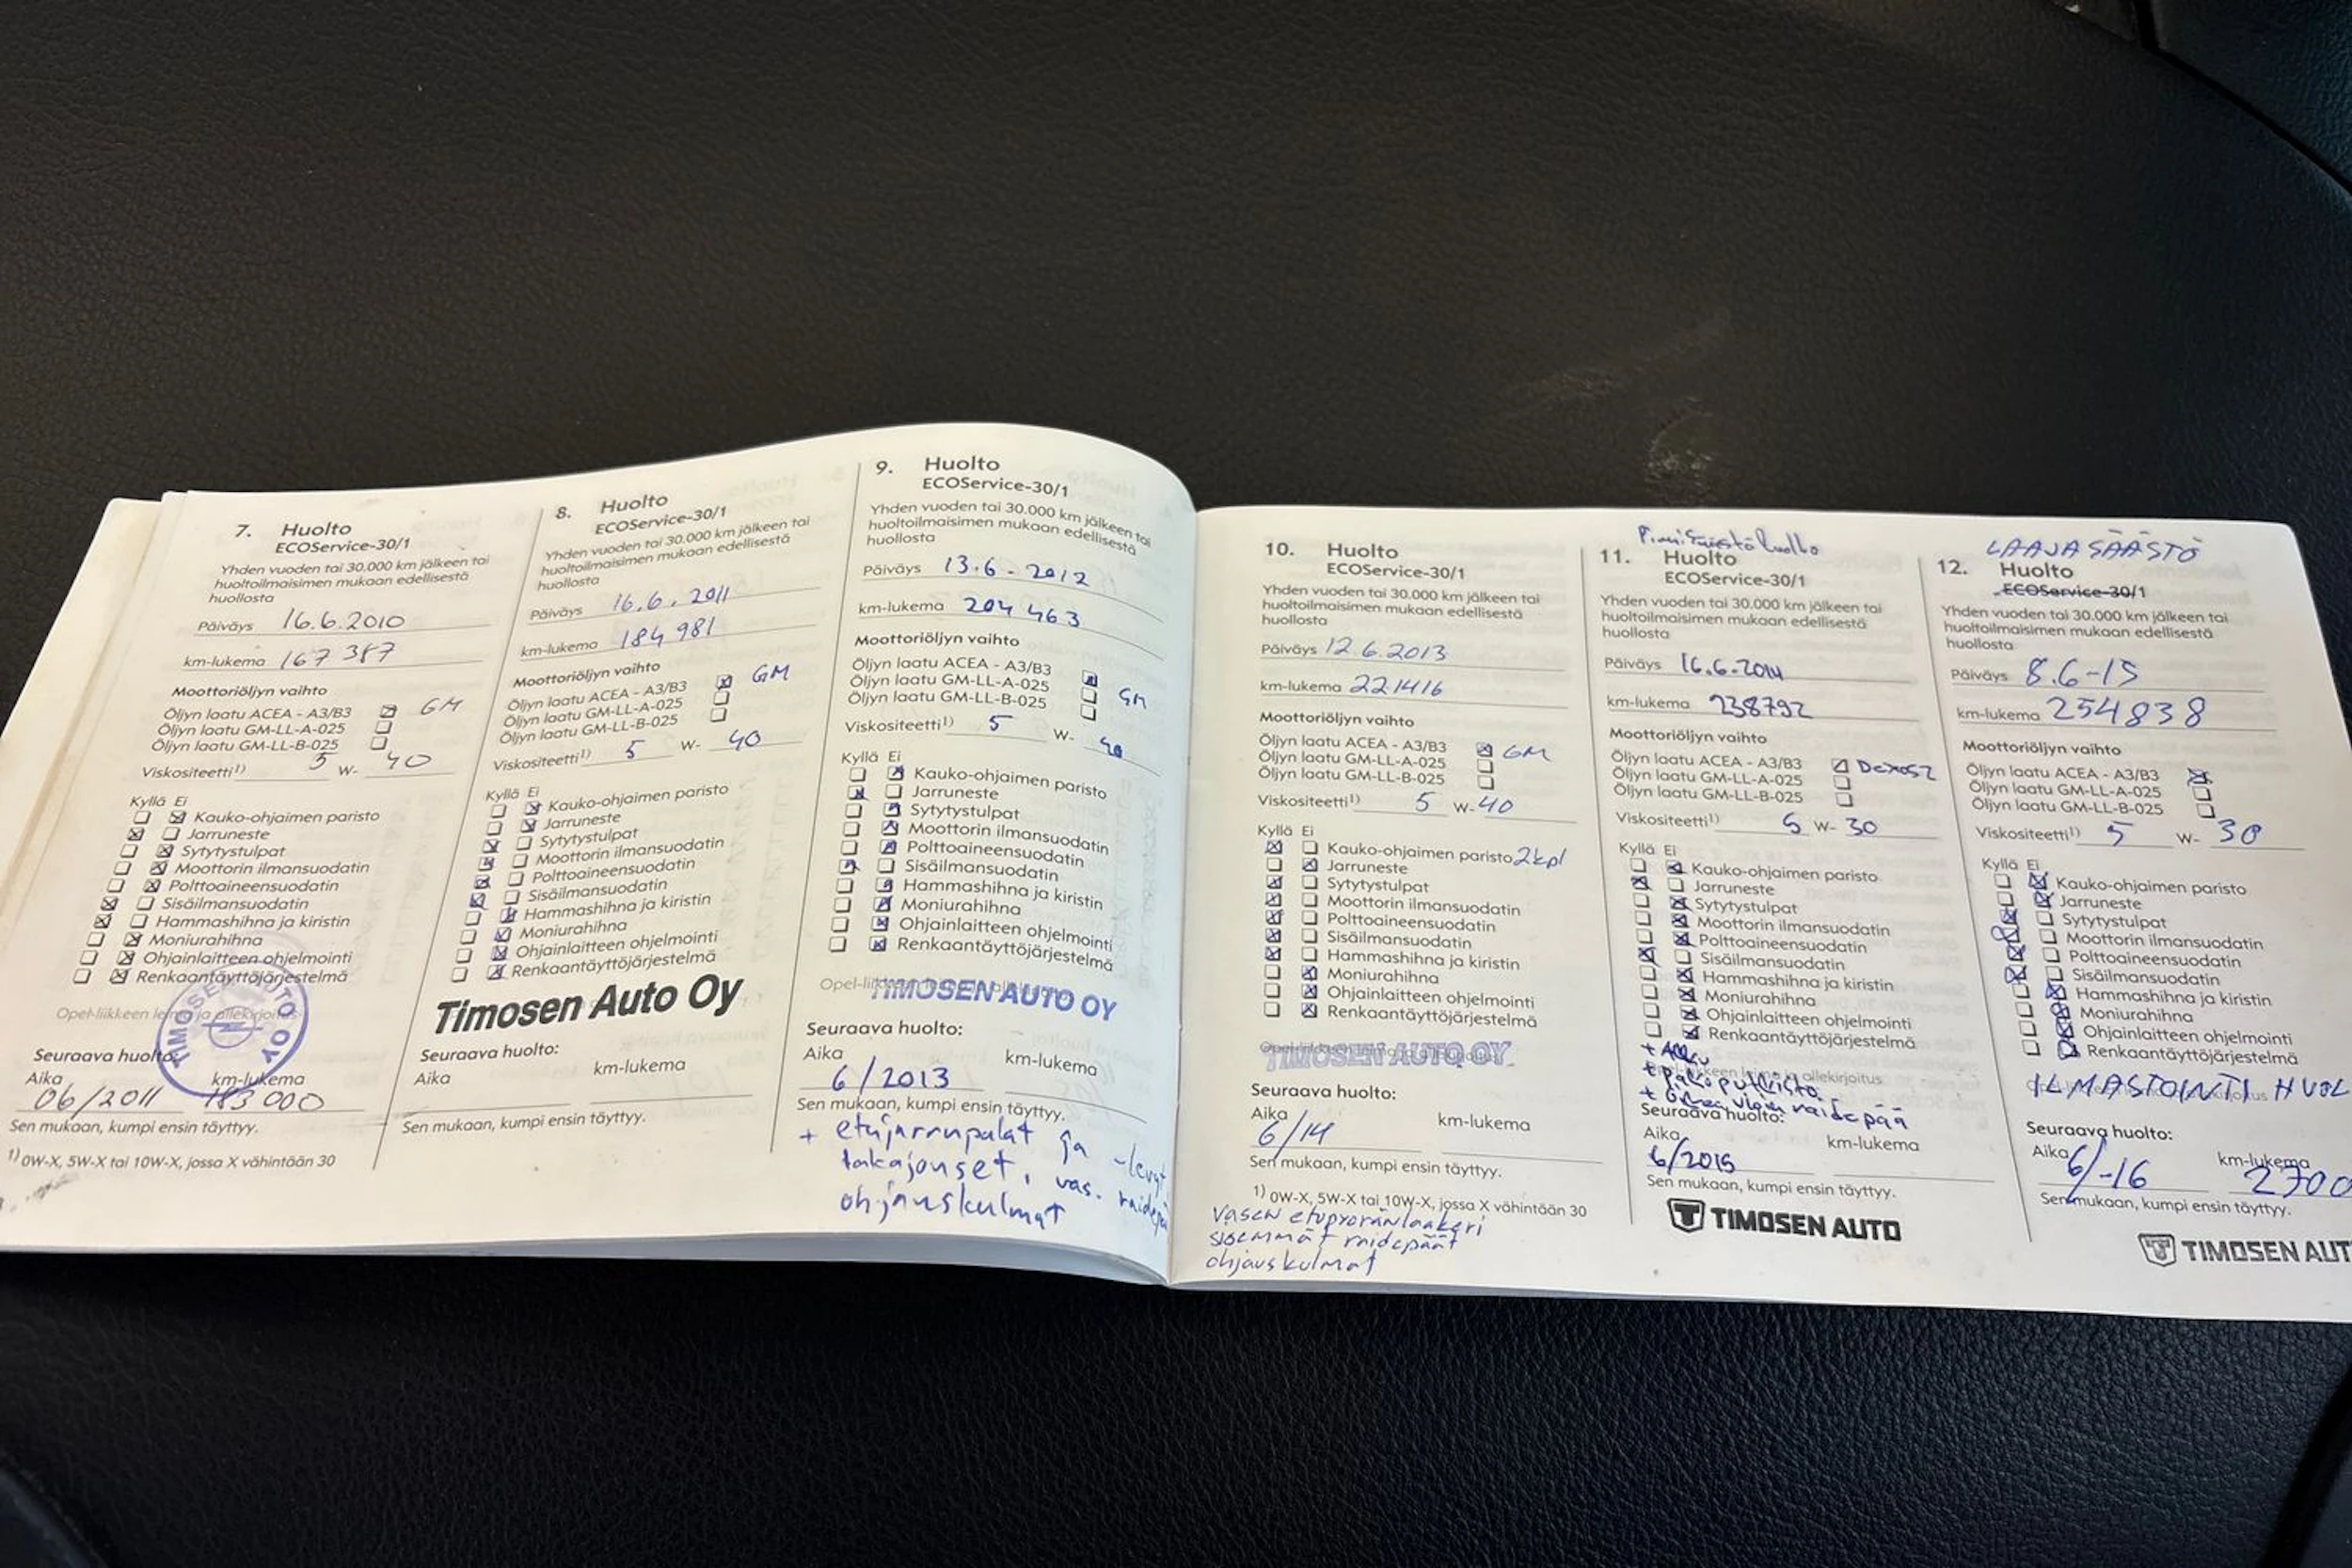 7. Huolto
ECOService-30/1
Yhden vuoden tai 30.000 km jälkeen tai
huoltoilmaisimen mukaan edellisestä
huollosta
Päiväys 16.6.2010
km-lukema 167 387
Moottoriöljyn vaihto
Öljyn laatu ACEA - A3/B3 GM
Öljyn laatu GM-LL-A-025
Öljyn laatu GM-LL-B-025
Viskositeetti¹⁾ 5 W- 40
Kyllä Ei
Kauko-ohjaimen paristo
Jarruneste
Sytytystulpat
Moottorin ilmansuodatin
Polttoaineensuodatin
Sisäilmansuodatin
Hammashihna ja kiristin
Moniurahihna
Ohjainlaitteen ohjelmointi
Renkaantäyttöjärjestelmä
Opel-liikkeen leima ja allekirjoitus
Seuraava huolto:
Aika km-lukema
06/2011 183 000
Sen mukaan, kumpi ensin täyttyy.
¹⁾ 0W-X, 5W-X tai 10W-X, jossa X vähintään 30
8. Huolto
ECOService-30/1
Yhden vuoden tai 30.000 km jälkeen tai
huoltoilmaisimen mukaan edellisestä
huollosta
Päiväys 16.6.2011
km-lukema 184 981
Moottoriöljyn vaihto
Öljyn laatu ACEA - A3/B3 GM
Öljyn laatu GM-LL-A-025
Öljyn laatu GM-LL-B-025
Viskositeetti¹⁾ 5 W- 40
Kyllä Ei
Kauko-ohjaimen paristo
Jarruneste
Sytytystulpat
Moottorin ilmansuodatin
Polttoaineensuodatin
Sisäilmansuodatin
Hammashihna ja kiristin
Moniurahihna
Ohjainlaitteen ohjelmointi
Renkaantäyttöjärjestelmä
Timosen Auto Oy
Seuraava huolto:
Aika km-lukema
Sen mukaan, kumpi ensin täyttyy.
9. Huolto
ECOService-30/1
Yhden vuoden tai 30.000 km jälkeen tai
huoltoilmaisimen mukaan edellisestä
huollosta
Päiväys 13.6-2012
km-lukema 204 463
Moottoriöljyn vaihto
Öljyn laatu ACEA - A3/B3
Öljyn laatu GM-LL-A-025 GM
Öljyn laatu GM-LL-B-025
Viskositeetti¹⁾ 5 W- 40
Kyllä Ei
Kauko-ohjaimen paristo
Jarruneste
Sytytystulpat
Moottorin ilmansuodatin
Polttoaineensuodatin
Sisäilmansuodatin
Hammashihna ja kiristin
Moniurahihna
Ohjainlaitteen ohjelmointi
Renkaantäyttöjärjestelmä
TIMOSEN AUTO OY
Seuraava huolto:
Aika km-lukema
6/2013
Sen mukaan, kumpi ensin täyttyy.
+ etujarrupalat ja -levyt
takajouset, vas. raidepä
ohjauskulmat
10. Huolto
ECOService-30/1
Yhden vuoden tai 30.000 km jälkeen tai
huoltoilmaisimen mukaan edellisestä
huollosta
Päiväys 12.6.2013
km-lukema 221416
Moottoriöljyn vaihto
Öljyn laatu ACEA - A3/B3 GM
Öljyn laatu GM-LL-A-025
Öljyn laatu GM-LL-B-025
Viskositeetti¹⁾ 5 W- 40
Kyllä Ei
Kauko-ohjaimen paristo 2kpl
Jarruneste
Sytytystulpat
Moottorin ilmansuodatin
Polttoaineensuodatin
Sisäilmansuodatin
Hammashihna ja kiristin
Moniurahihna
Ohjainlaitteen ohjelmointi
Renkaantäyttöjärjestelmä
TIMOSEN AUTO OY
Seuraava huolto:
Aika km-lukema
6/14
Sen mukaan, kumpi ensin täyttyy.
¹⁾ 0W-X, 5W-X tai 10W-X, jossa X vähintään 30
Vasen etupyöränlaakeri
sisemmät raidepäät
ohjauskulmat
11. Huolto
ECOService-30/1
Yhden vuoden tai 30.000 km jälkeen tai
huoltoilmaisimen mukaan edellisestä
huollosta
Päiväys 16.6.2014
km-lukema 238792
Moottoriöljyn vaihto
Öljyn laatu ACEA - A3/B3 Dexos2
Öljyn laatu GM-LL-A-025
Öljyn laatu GM-LL-B-025
Viskositeetti¹⁾ 5 W- 30
Kyllä Ei
Kauko-ohjaimen paristo
Jarruneste
Sytytystulpat
Moottorin ilmansuodatin
Polttoaineensuodatin
Sisäilmansuodatin
Hammashihna ja kiristin
Moniurahihna
Ohjainlaitteen ohjelmointi
Renkaantäyttöjärjestelmä
+ Akku
+ pakoputkisto
raidepää
Seuraava huolto:
Aika km-lukema
6/2015
Sen mukaan, kumpi ensin täyttyy.
TIMOSEN AUTO
LAAJA SÄÄSTÖ
12. Huolto
ECOService-30/1
Yhden vuoden tai 30.000 km jälkeen tai
huoltoilmaisimen mukaan edellisestä
huollosta
Päiväys 8.6-15
km-lukema 254838
Moottoriöljyn vaihto
Öljyn laatu ACEA - A3/B3
Öljyn laatu GM-LL-A-025
Öljyn laatu GM-LL-B-025
Viskositeetti¹⁾ 5 W- 30
Kyllä Ei
Kauko-ohjaimen paristo
Jarruneste
Sytytystulpat
Moottorin ilmansuodatin
Polttoaineensuodatin
Sisäilmansuodatin
Hammashihna ja kiristin
Moniurahihna
Ohjainlaitteen ohjelmointi
Renkaantäyttöjärjestelmä
ILMASTOINTI HUOL
Seuraava huolto:
Aika km-lukema
6/-16 2700
Sen mukaan, kumpi ensin täyttyy.
TIMOSEN AUT